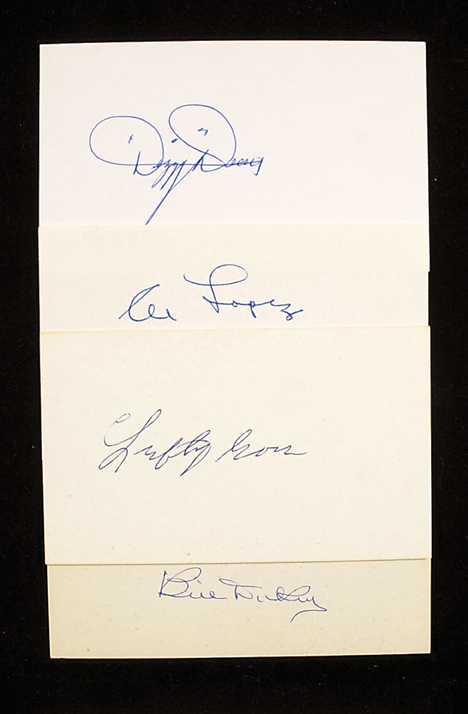 "Dizzy" Dean
Al Lopez
Lefty Gomez
Bill Dickey